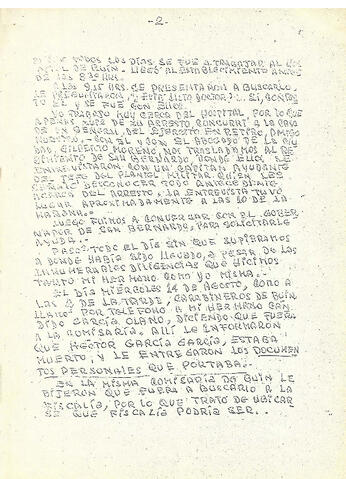 -2-
TODOS LOS DIAS, SE FUE A TRABAJAR AL
DE BUIN. LLEGÓ AL ESTABLECIMIENTO ANTES
DE LAS 8.30 HRS.
A LAS 9.15 HRS. SE PRESENTARON A BUSCARLO,
LE PREGUNTARON,
Y SE FUE CON ELLOS.
YO TRABAJO MUY CERCA DEL HOSPITAL, POR LO QUE
APENAS SUPE DE SU ARRESTO RECURRÍ A LA
DE UN GENERAL, DEL EJÉRCITO EN RETIRO, AMIGO
NUESTRO. CON ÉL Y CON EL ABOGADO DE LA
GILBERTO MORENO, NOS TRASLADAMOS AL RE
GIMIENTO DE SAN BERNARDO, DONDE ELLOS SE
ENTREVISTARON CON UN CAPITÁN AYUDANTE
DEL JEFE DEL PLANTEL MILITAR QUIEN LES
DESCONOCER TODO ANTECEDENTE
ACERCA DEL ARRESTO. LA ENTREVISTA TUVO
LUGAR APROXIMADAMENTE A LAS 10 DE LA
MAÑANA.
LUEGO FUIMOS A CONVERSAR CON EL GOBER
NADOR DE SAN BERNARDO, PARA SOLICITARLE
AYUDA..
PASÓ TODO EL DÍA SIN QUE SUPIERAMOS
A DONDE HABÍA SIDO LLEVADO, A PESAR DE LAS
INNUMERABLES DILIGENCIAS QUE HICIMOS
TANTO MI HERMANO COMO YO MISMA..
EL DÍA MIERCOLES 14 DE AGOSTO, COMO A
LAS DE LA TARDE, CARABINEROS DE BUIN
LLAMÓ POR TELEFONO A MI HERMANO CAN
DIDO GARCÍA OLANO, DICIENDO QUE FUERA
A LA COMISARÍA. ALLÍ LE INFORMARON
QUE HECTOR GARCÍA GARCÍA, ESTABA
MUERTO, Y LE ENTREGARON LOS DOCUMEN
TOS PERSONALES QUE PORTABA..
EN LA MISMA COMISARÍA DE BUIN LE
DIJERON QUE FUERA A BUSCARLO A LA
FISCALÍA, POR LO QUE TRATÓ DE UBICAR
QUE FISCALÍA PODRÍA SER..